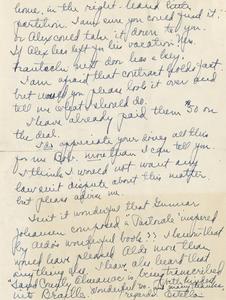 home, in the right hand
partition. I am sure you could find it.
Or Alex could take it down to you.
If Alex has left for his vacation Mrs.
next door has a key.
I am afraid that contract holds fast
but would you please look it over and
tell me what I should do.
I have already paid them $50 on
the deal.
I do appreciate your doing all this
for me Bob. more than I can tell you.
I think I would not want any
law suit dispute about this matter
but please advise me.
Isn't it wonderful that Gunnar
Johansen composed "Pastorale" inspired
by Aldo's wonderful book?? I know that
would have pleased Aldo more than
anything else. I have also heard that
"Sand County Almanac" is being transcribed
into Braille. Wonderful too.
With kindest
regards, Estella